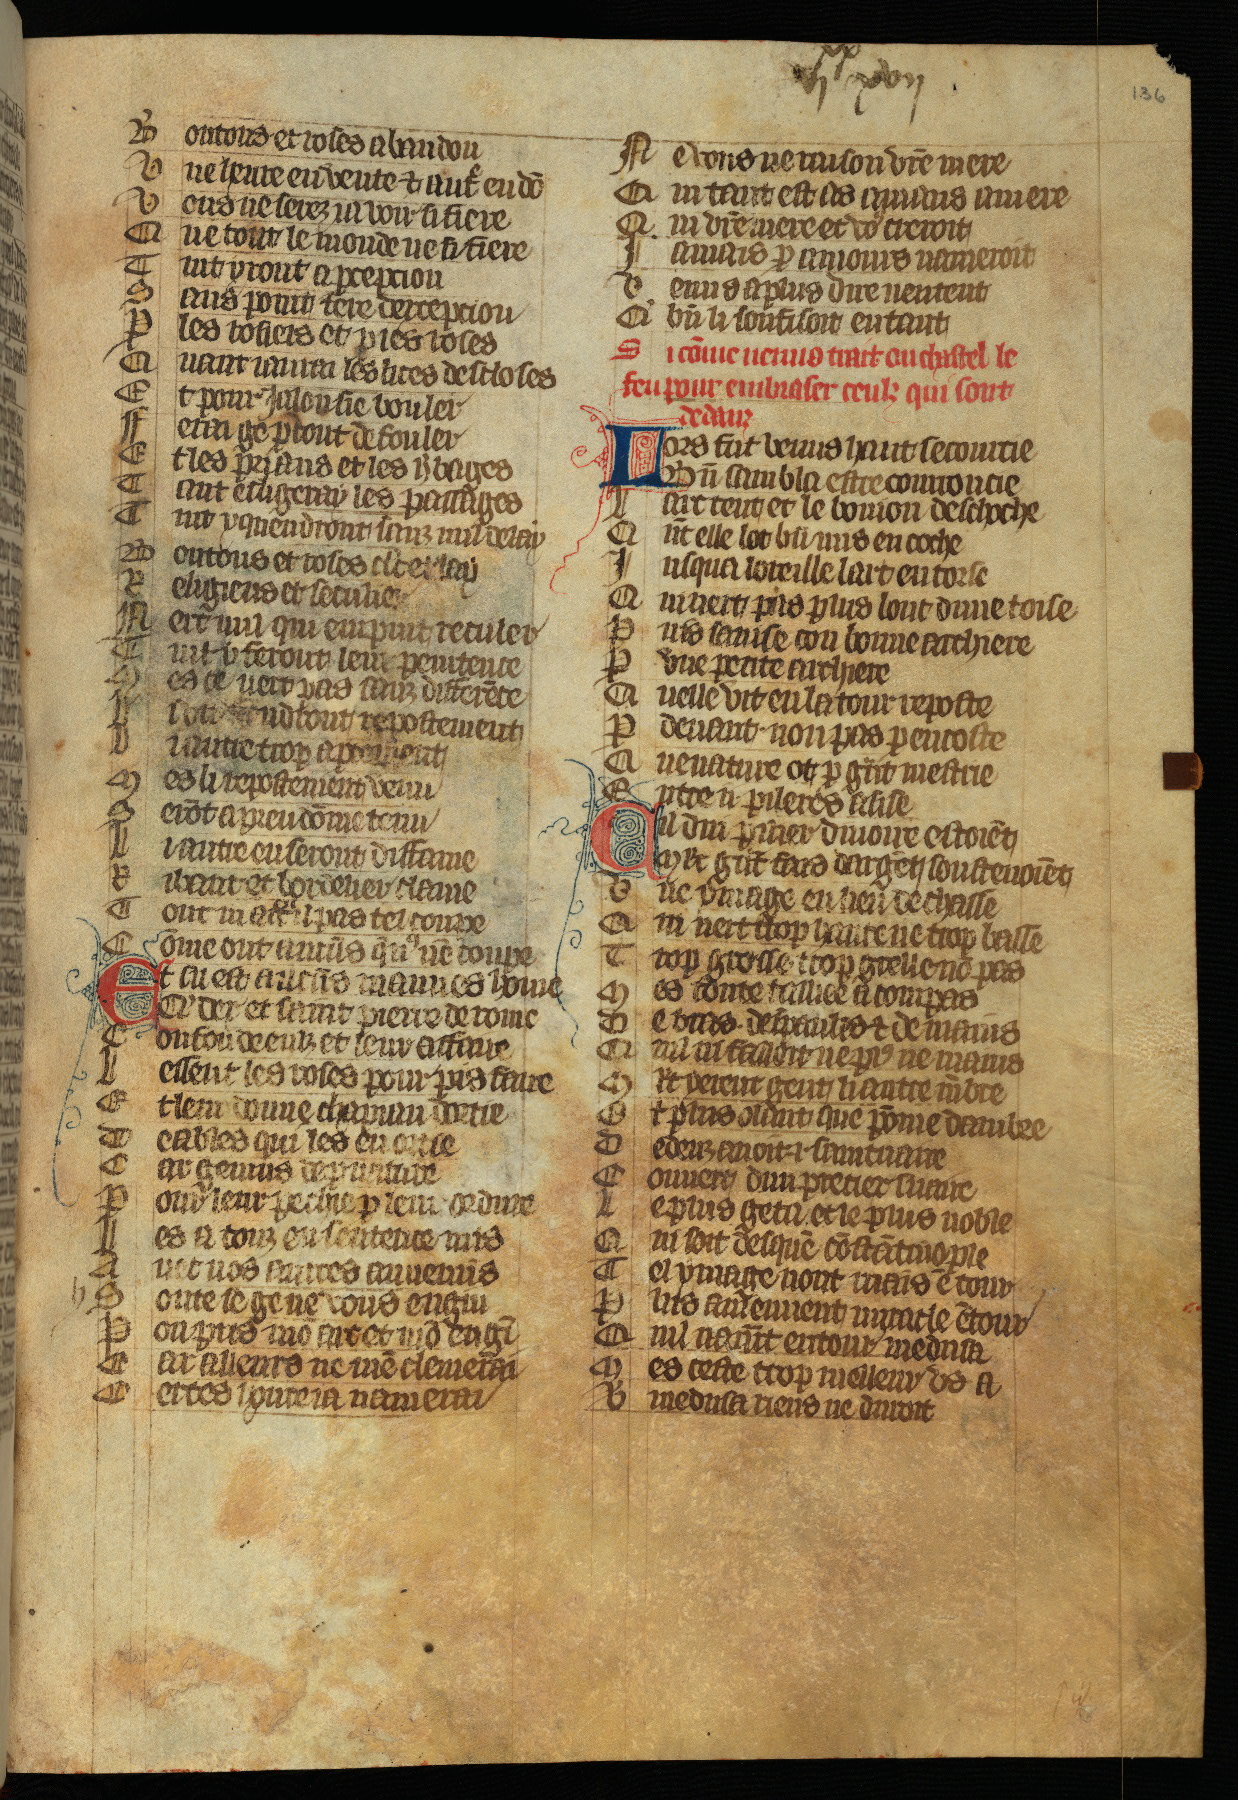 vjxx xvij
136
B outons et roses abandon
V ne heure en vente et autre en dō
V ous ne serez ia voir si fiere
Q ue tout le monde ne si fiere
T uit yront a pcepcion
S ans point fere decepcion
P les rosiers et p les roses
Q uant iaurai les lices descloses
E t pour Jalousie bouler
F erai ge p tout defouler
E t les praiaus et les hbages
T ant eslargeray les passages
T uit y quendront sanz nul delay
B outons et roses clerc lay
R eligieus et seculier
N ert nul qui en puist reculer
T uit y feront leur penitence
M es ce nert pas sanz differēce
L i un vendront repostement
L i autre trop apertement
M es li repostement venu
S erōt a preudōme tenu
L i autre en seront diffame
R ibaut et bordelier clame
T out niaīt il pas tel coupe
C ōme ont aucūs quī nē coupe
E t cil est aucūs mauues home
Q ue der et saint pierre de rome
C onfonde eulz et leur affaire
L essent les roses pour pis faire
E t leur donne chapiau dortie
D eables qui les en ortie
C ar genius de p nature
P our leur pechie p leur ordure
L es a touz en sentence mis
A uec nos autres annemis
S onte se ge ne vous engin
P ou pris mō arc et mō engī
C ar ailleurs ne mē clemerai
C ertes honte ia namerai
N e vous ne raison vrē mere
Q ui tant est as amans amere
Q ui vrē mere et vo creroit
J amais p amours nameroit
V enus a plus dire nentent
Q bn̄ li souffisoit en tant
S i cōme uenus trait ou chastel le
feu pour embraser ceulz qui sont
dedanz
L ors sait venus haut secourcie
B n̄ sambla estre couroucie
L arc tent et le boujon deschoche
Q n̄t elle lot bn̄ mis en coche
J usqua loreille lart entorse
Q ui nert pas plus lonc dune toise
P uis sauise com bonne archiere
P vne petite archiere
Q uelle vit en la tour reposte
P deuant non pas p en coste
Q ue nature ot p grāt mestrie
E ntre ii pilerés assise
C il dui pilier diuoire estoiēt
M lt̄ gn̄t fais dargēt soustenoiēt
V ne ymage en lieu de chasse
Q ui nert trop haute ne trop basse
T rop grosse trop grelle nō pas
M es toute taillee a compas
D e bras despaules et de mains
Q uil ni failloit ne p9 ne mains
M lt̄ ierent gent li autre mēbre
E t plus olant que pōme dambre
D edenz auoit .i. saintuaire
C ouuert dun precieus suaire
L e plus gent et le plus noble
Q ui soit desquē cōstātinople
T el ymage nont mais ē tour
P lus auiennent miracle ētour
Q uil nauīt entour medusa
M es ceste trop meilleur vs a
V medusa riens ne duroit